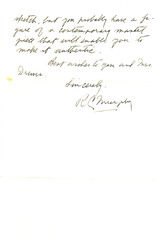 sketch, but you probably have a fi-
gure of a contemporary market
that will enable you to
make it authentic.
Best wishes to you and Mrs.
Drews.
Sincerely,
R C Murphy